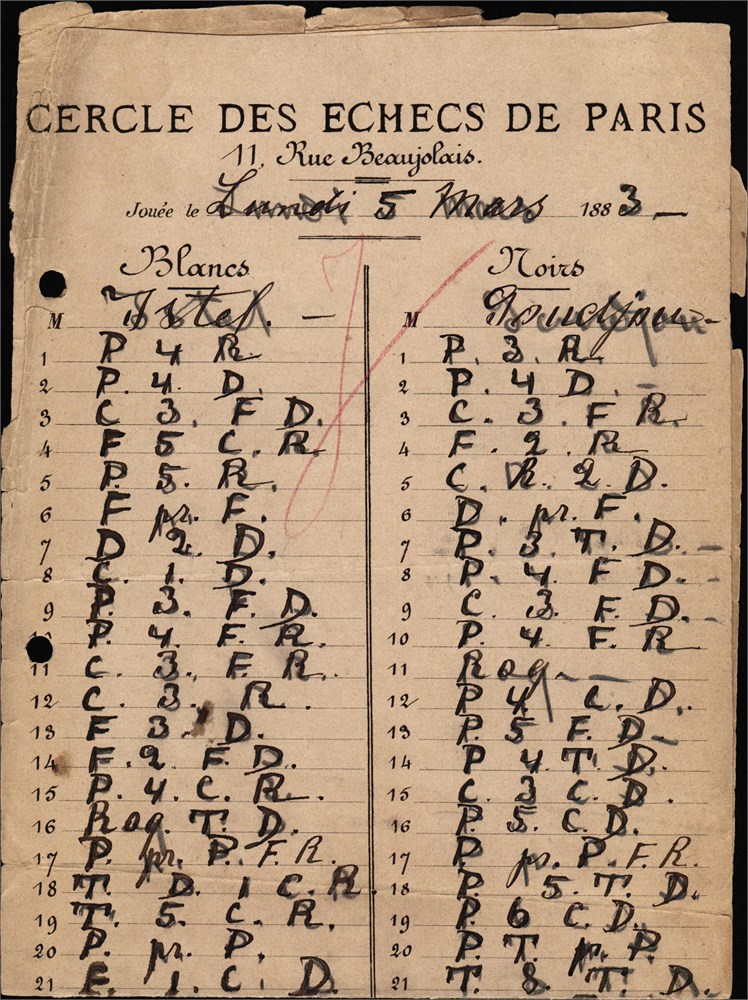 CERCLE DES ECHECS DE PARIS
11, Rue Beaujolais.
Jouée le Lundi 5 Mars 1883 —
Blancs Noirs
M Istel. — M
1 P 4 R 1 P. 3. R.
2 P. 4. D. 2 P. 4 D. –
3 C 3. F D. 3 C. 3. F R.
4 F 5 C. R. 4 F. 2. R
5 P. 5. R. 5 C. R. 2. D.
6 F pr. F. 6 D. pr. F.
7 D 2. D. 7 P. 3. T. D. –
8 C. 1. D. 8 P. 4 F D. –
9 P. 3. F. D. 9 C. 3. F. D. –
10 P. 4. F. R. 10 P. 4 F. R
11 C. 3. F. R. 11 Roq – –
12 C. 3. R. 12 P 4 C. D.
13 F 3. D. 13 P. 5 F. D –
14 F. 2 F. D. 14 P 4 T. D.
15 P. 4. C. R. 15 C. 3 C. D.
16 Roq. T. D. 16 P. 5. C. D.
17 P. pr. P. F. R. 17 P. pr. P. F. R.
18 T. D. 1 C. R. 18 P. 5. T. D.
19 T. 5. C. R. 19 P. 6 C. D.
20 P. pr. P. 20 P. T. pr. P.
21 F. 1. C. D. 21 T. 8. T. D.